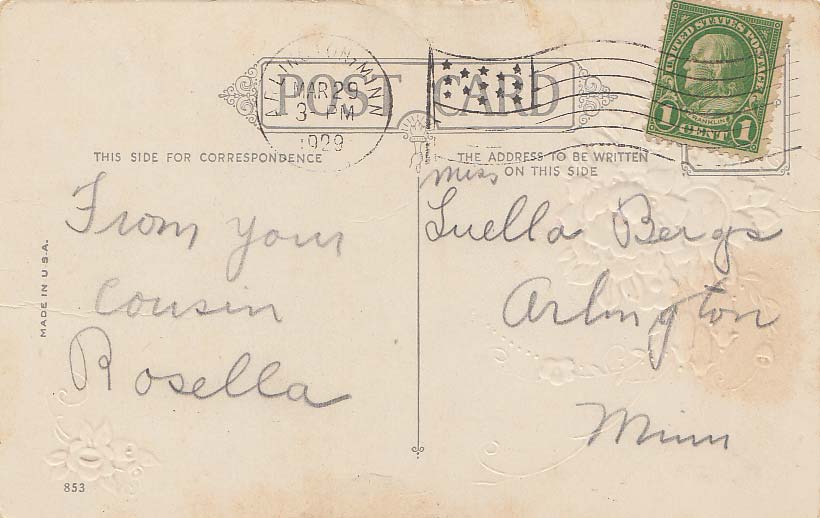 ARLINGTON, MINN
MAR 29
3 PM
1929
POST CARD
UNITED STATES POSTAGE
FRANKLIN
1 CENT 1
THIS SIDE FOR CORRESPONDENCE
THE ADDRESS TO BE WRITTEN
ON THIS SIDE
MADE IN U.S.A.
From your
cousin
Rosella
853
Miss
Luella Bergs
Arlington
Minn